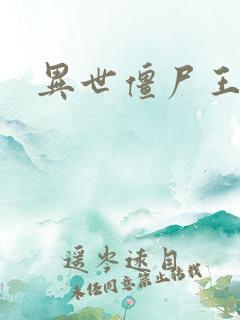 異世僵尸王
遥岑速自
未经同意禁止转载